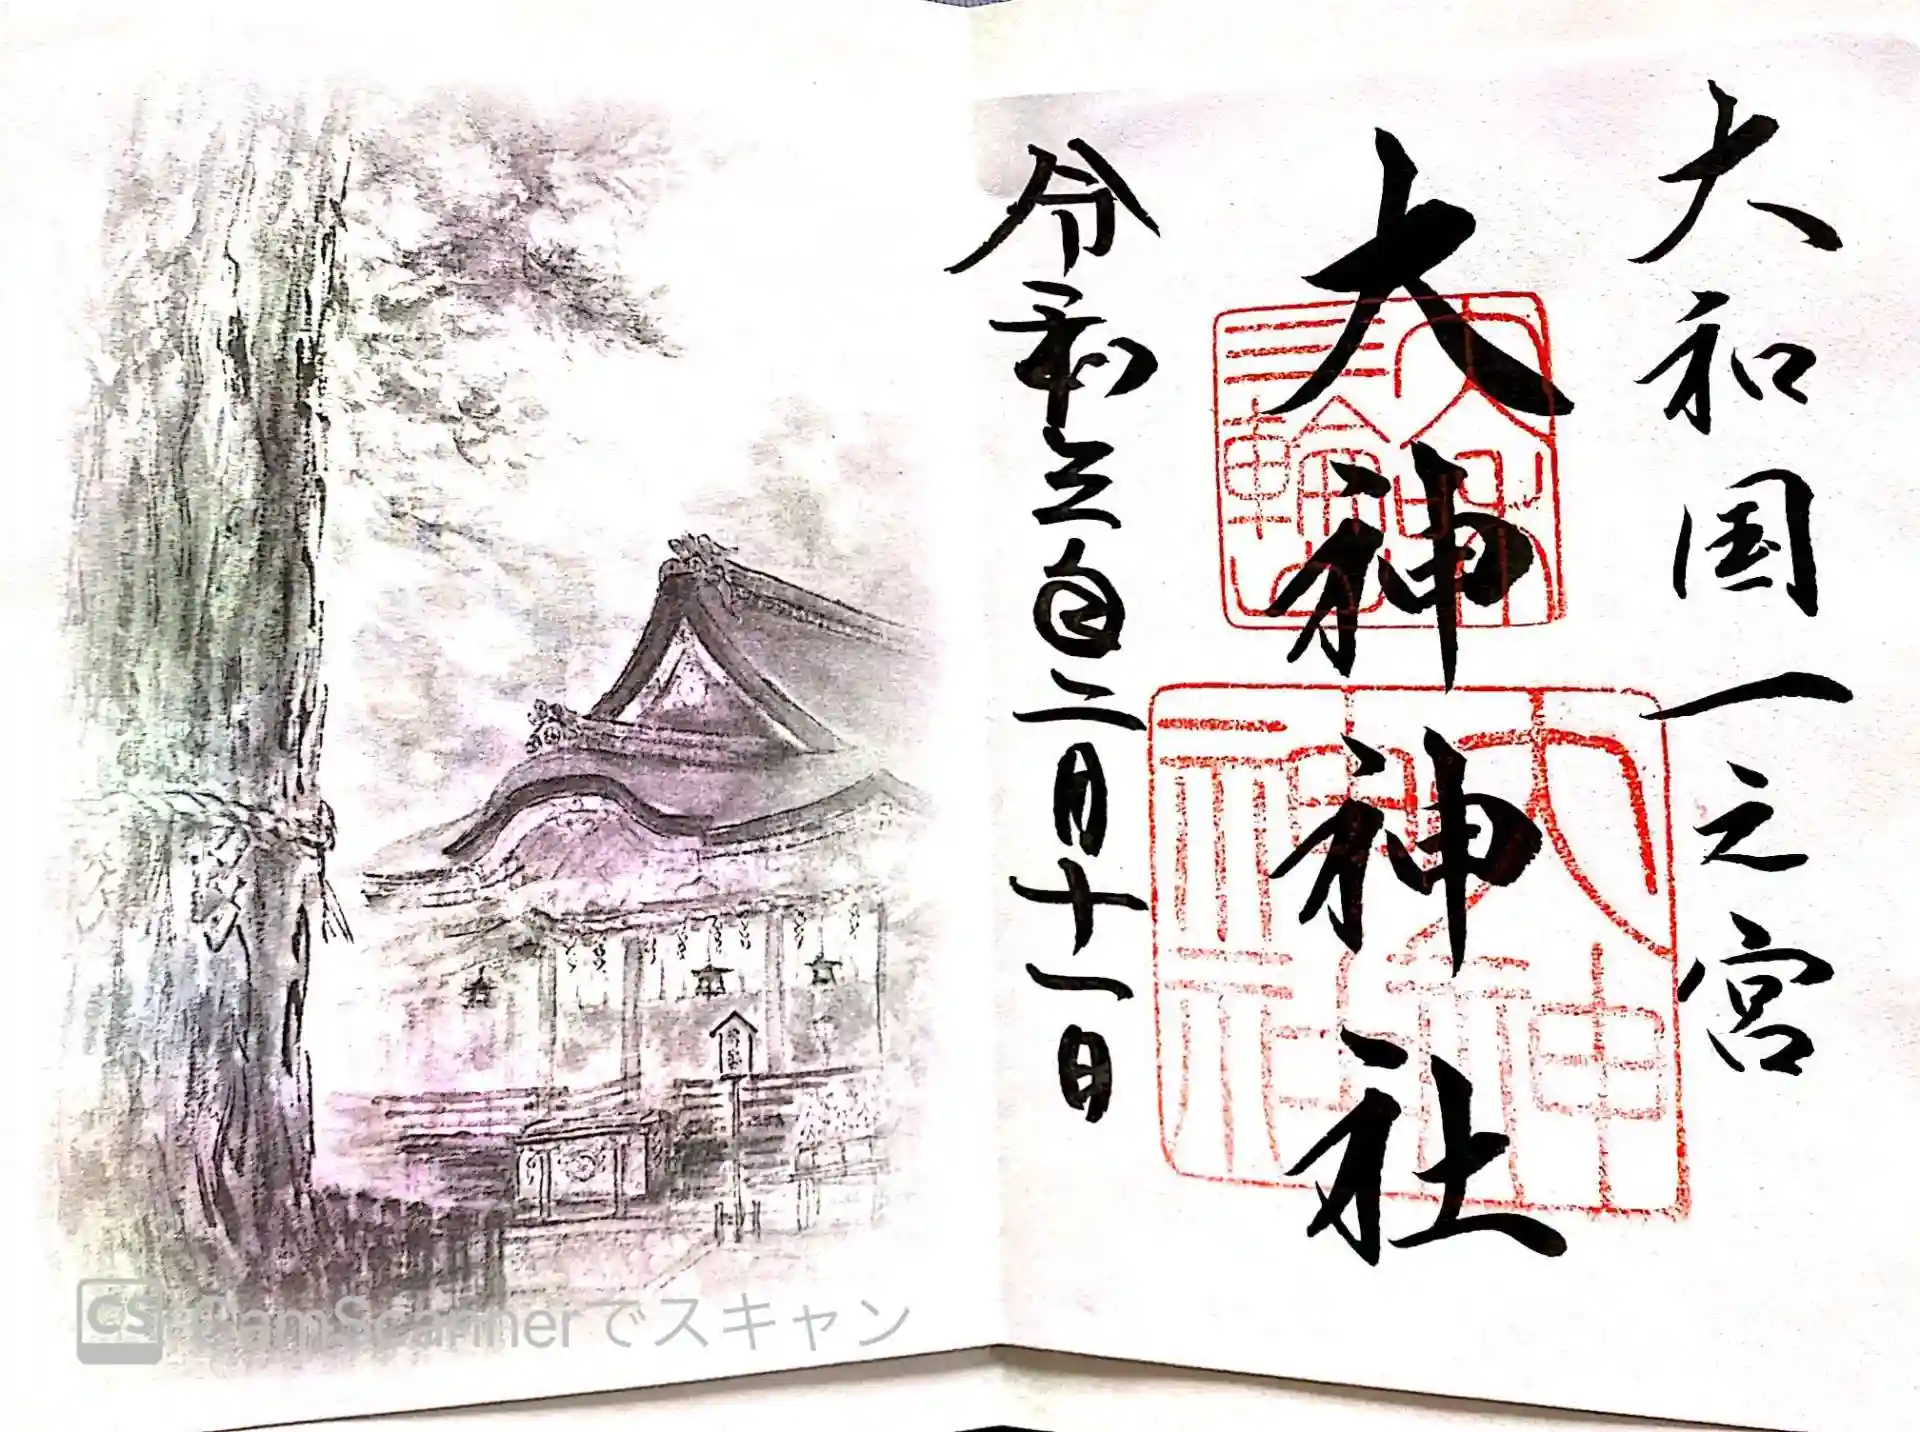 大和国一之宮
大神神社
令和五年二月十一日
三輪山
大神
神社
CS CamScannerでスキャン